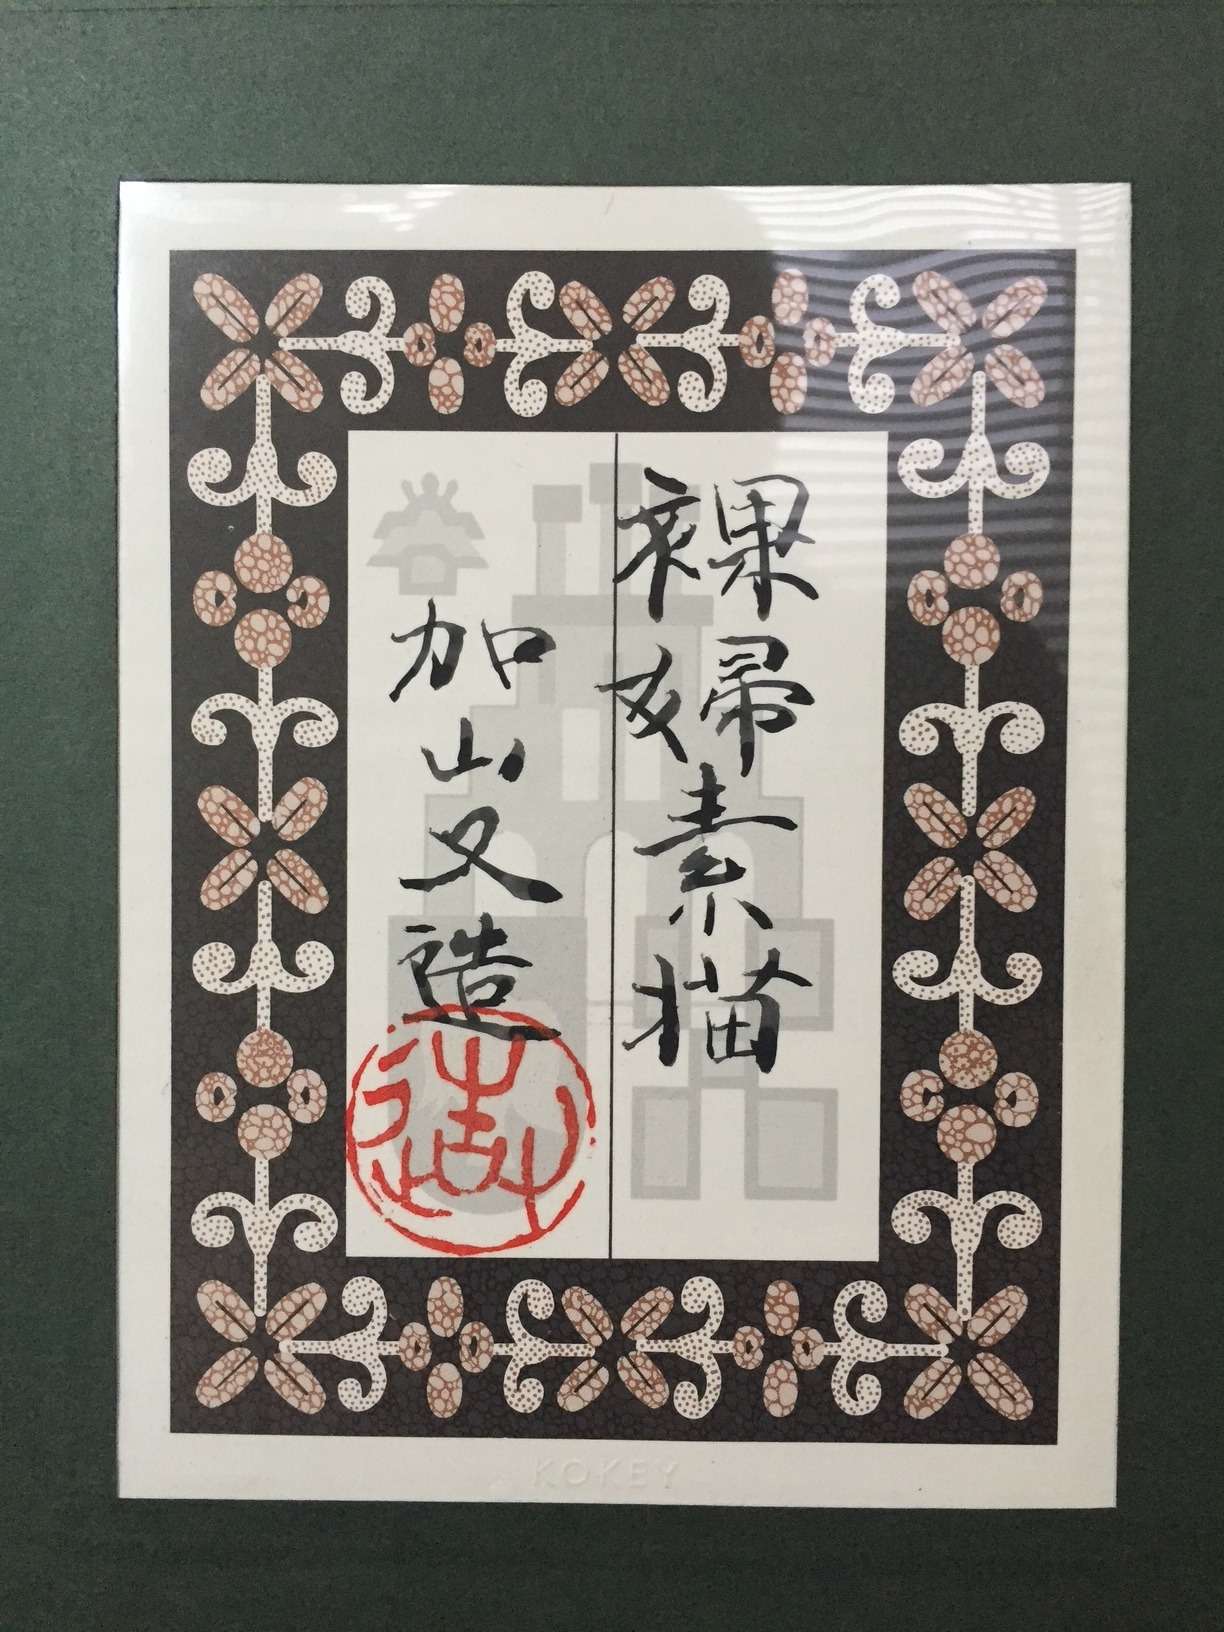 裸婦素描
加山又造
KOKEY